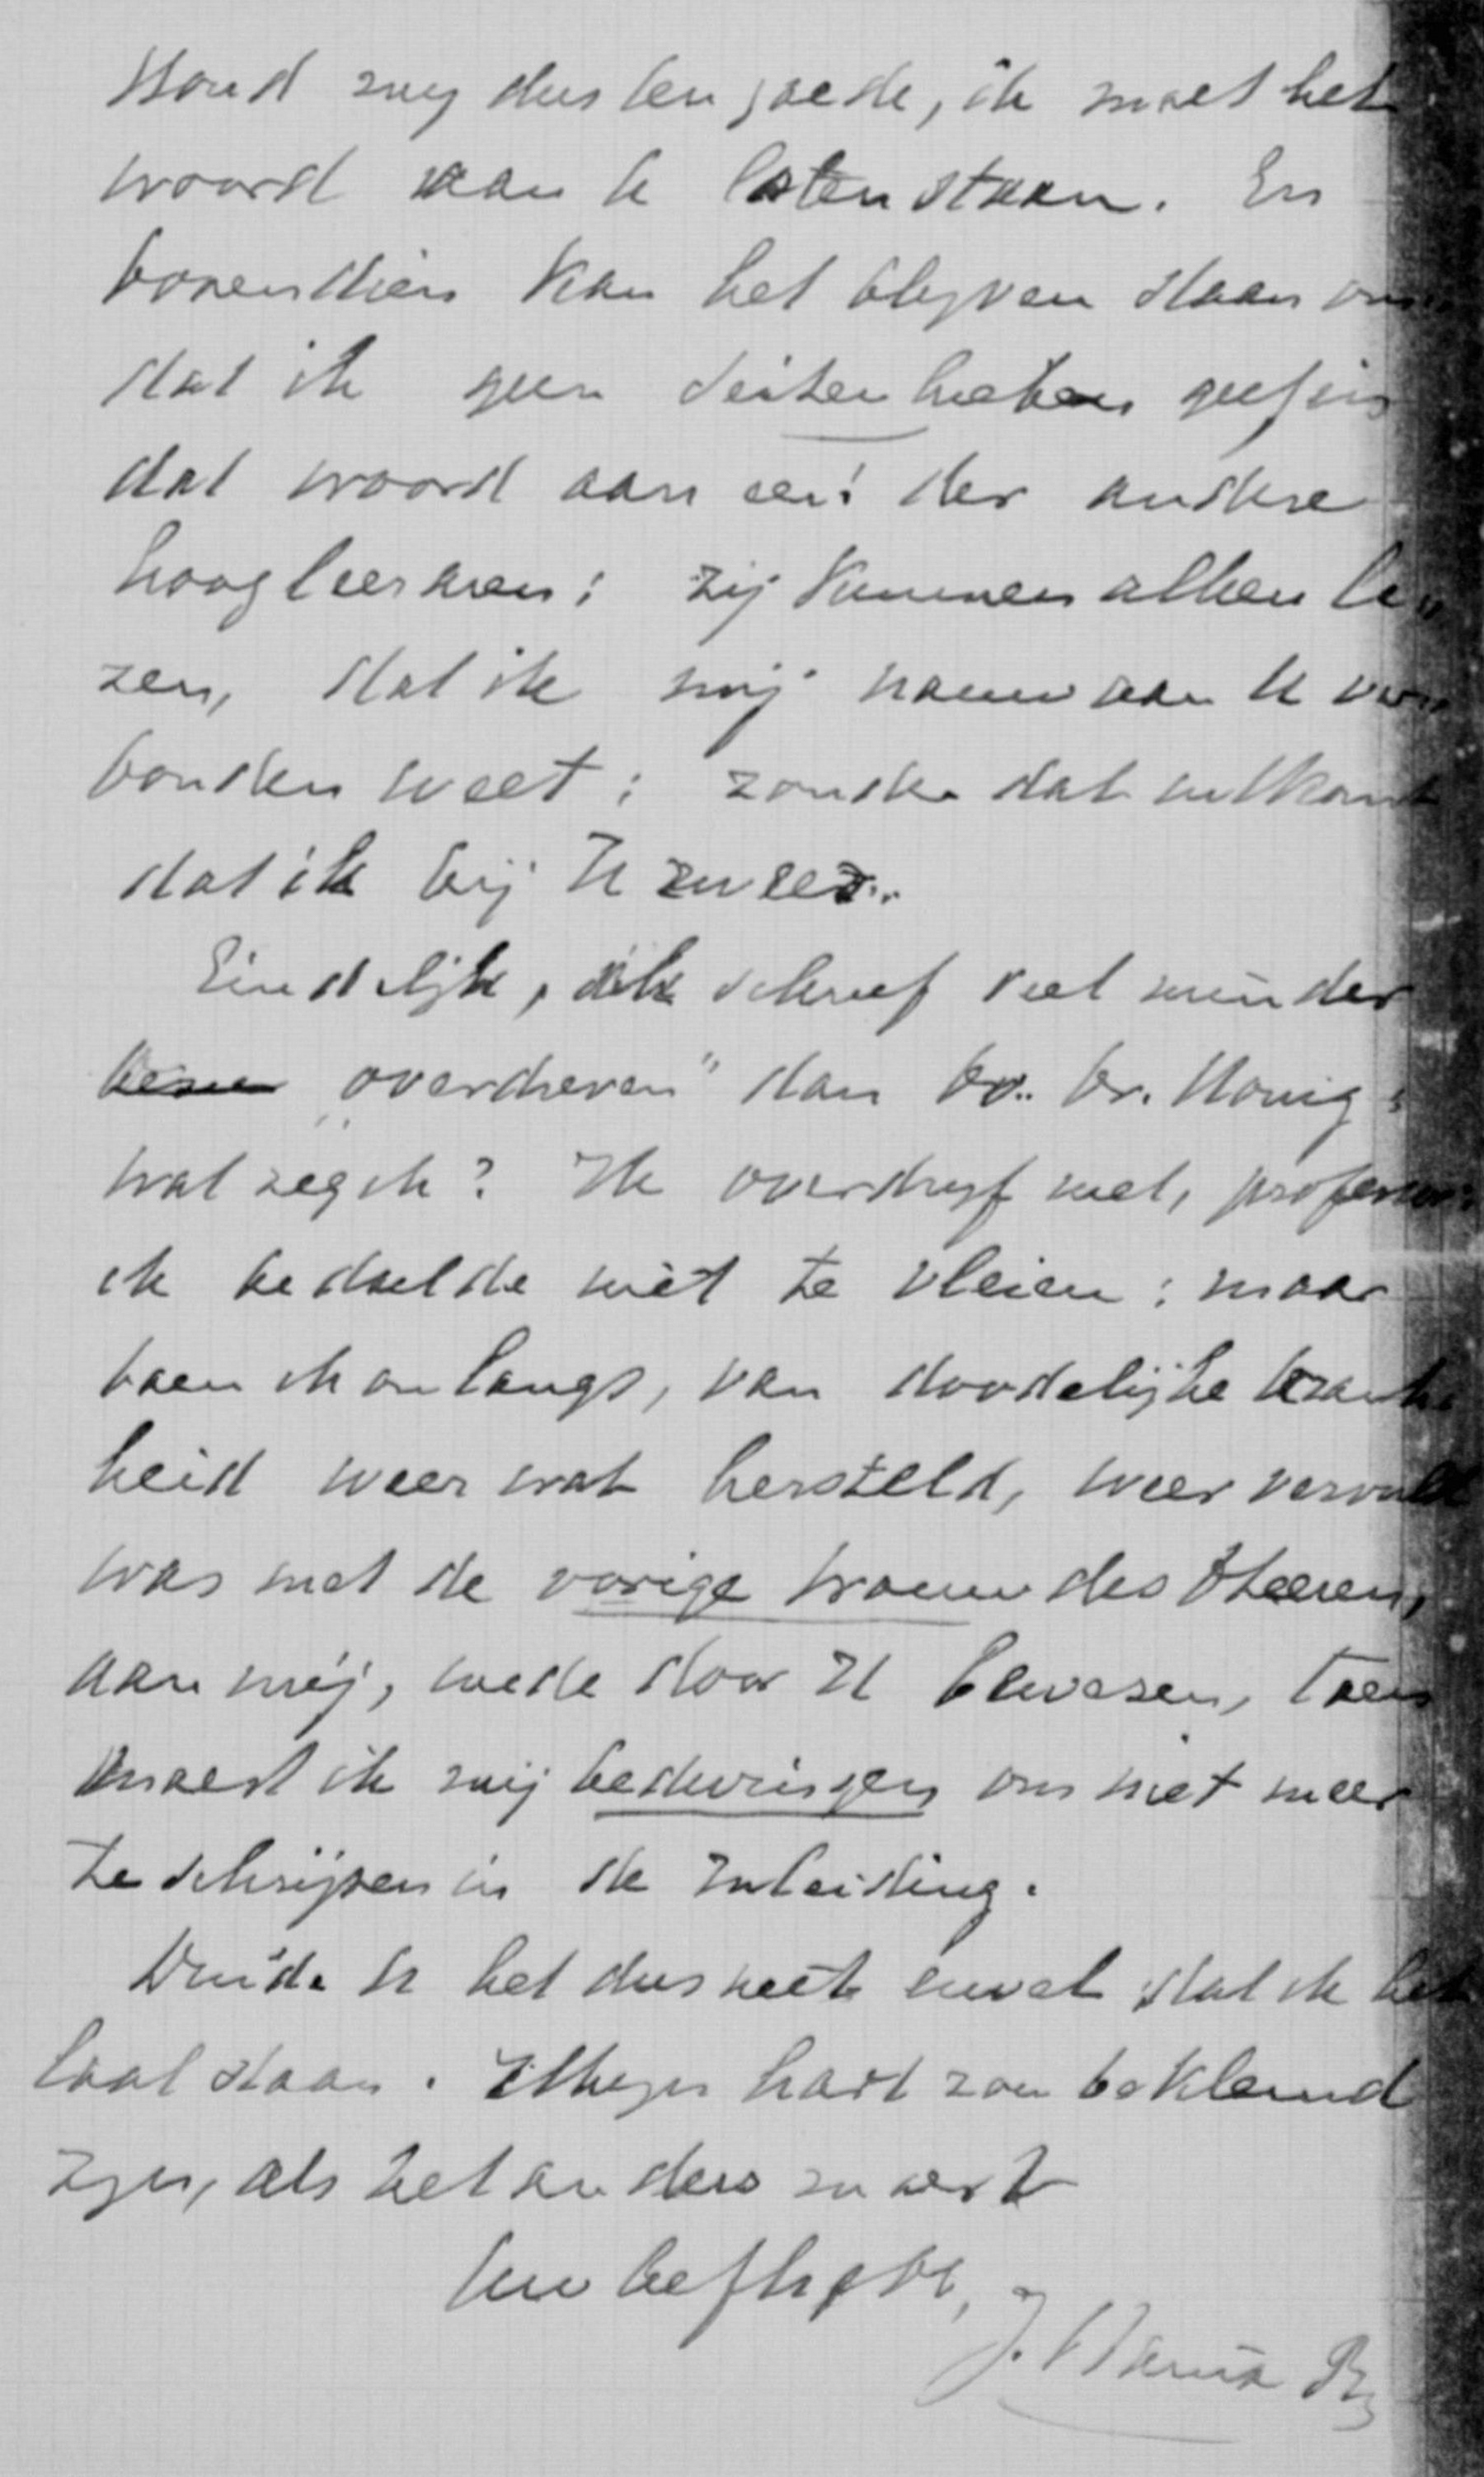 Houd mij dus ten goede, ik moet het
woord aan U laten staan. En
bovendien kan het blijven staan om
dat ik geen buiten hebben geef in
dat woord aan een der andere
hoogleeraren: zij kunnen alleen le
zen, dat ik mij nauw aan U ver
bonden weet: zonder dat uitkomt
dat ik bij U
Eindelijk, ik schreef veel minder
"overdreven" dan br. Honig:
wat zeg ik? Ik overdrijf niet, professor:
ik bedoelde niet te vleien: maar
toen ik onlangs, van doodelijke krank
heid weer wat hersteld, weer vervuld
was met de vorige trouw des Heeren,
aan mij, mede door U bewezen, toen
moest ik mij bedwingen om niet meer
te schrijven in de Inleiding.
Duide U het dus niet euvel dat ik het
laat staan. Mijn hart zou beklemd
zijn, als het anders moest
Uw liefh.
J.